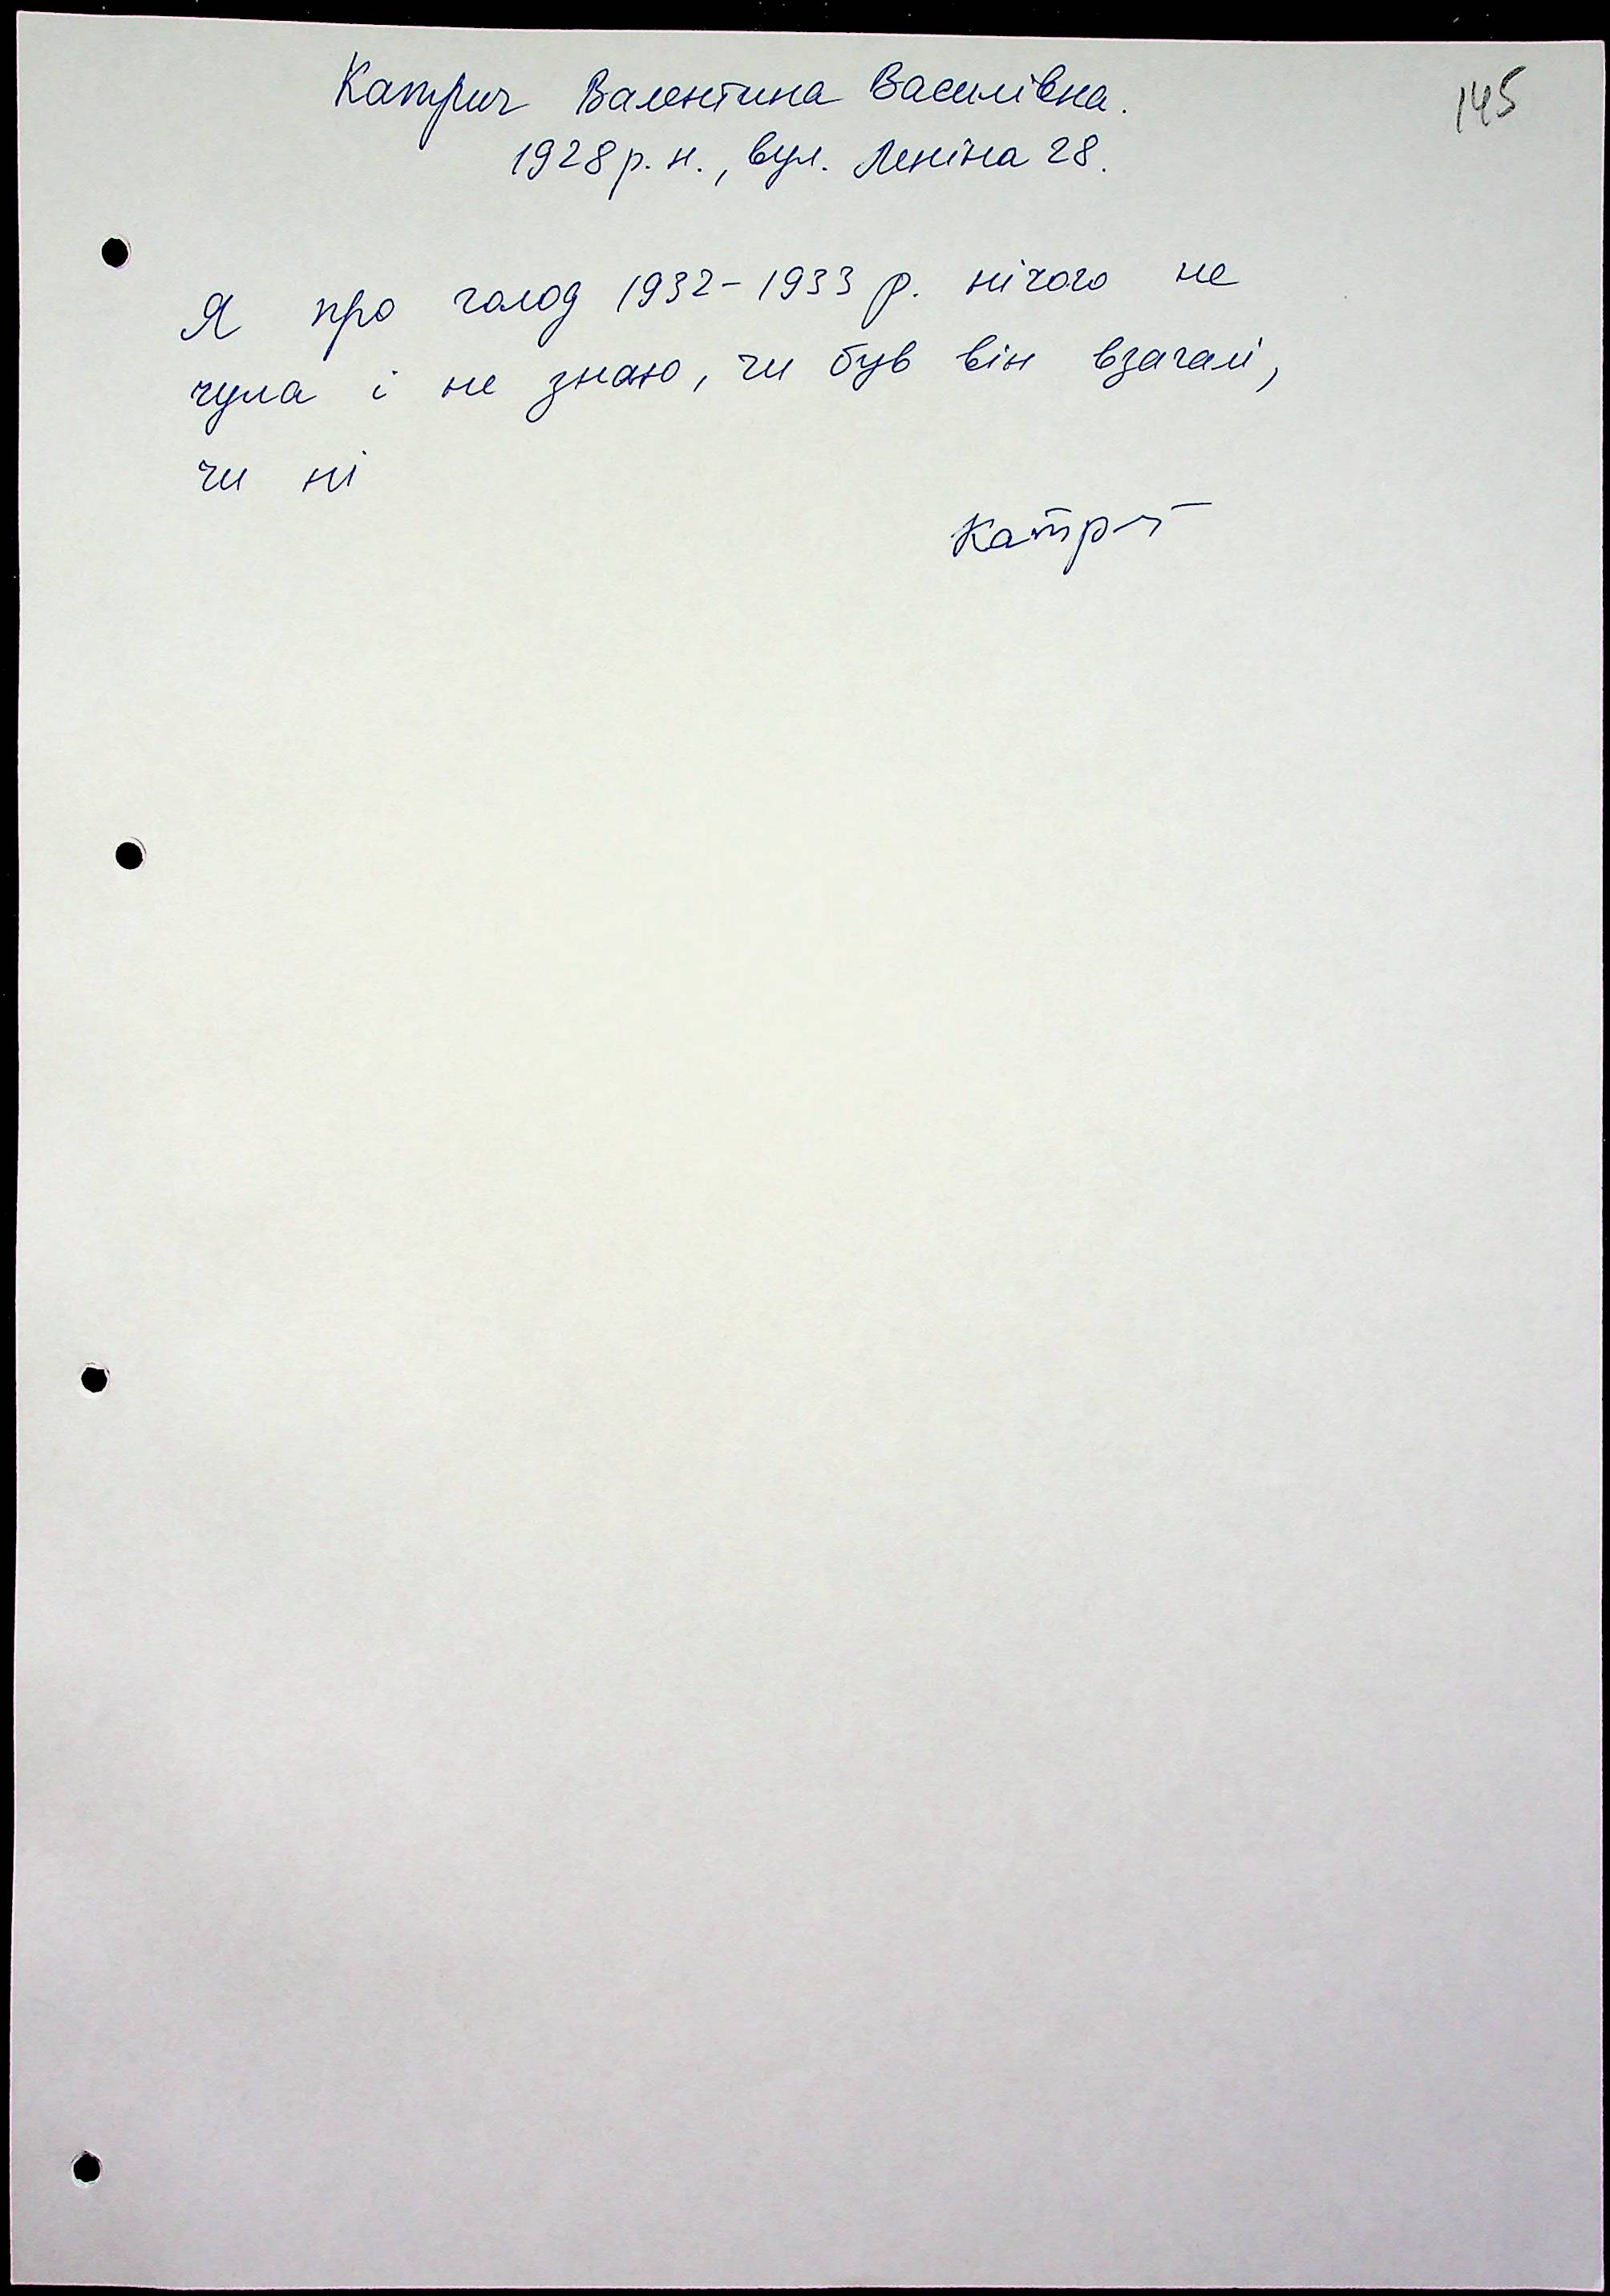 145
Катрич Валентина Василівна.
1928 р. н., вул. Леніна 28.
Я про голод 1932-1933 р. нічого не
чула і не знаю, чи був він взагалі,
чи ні